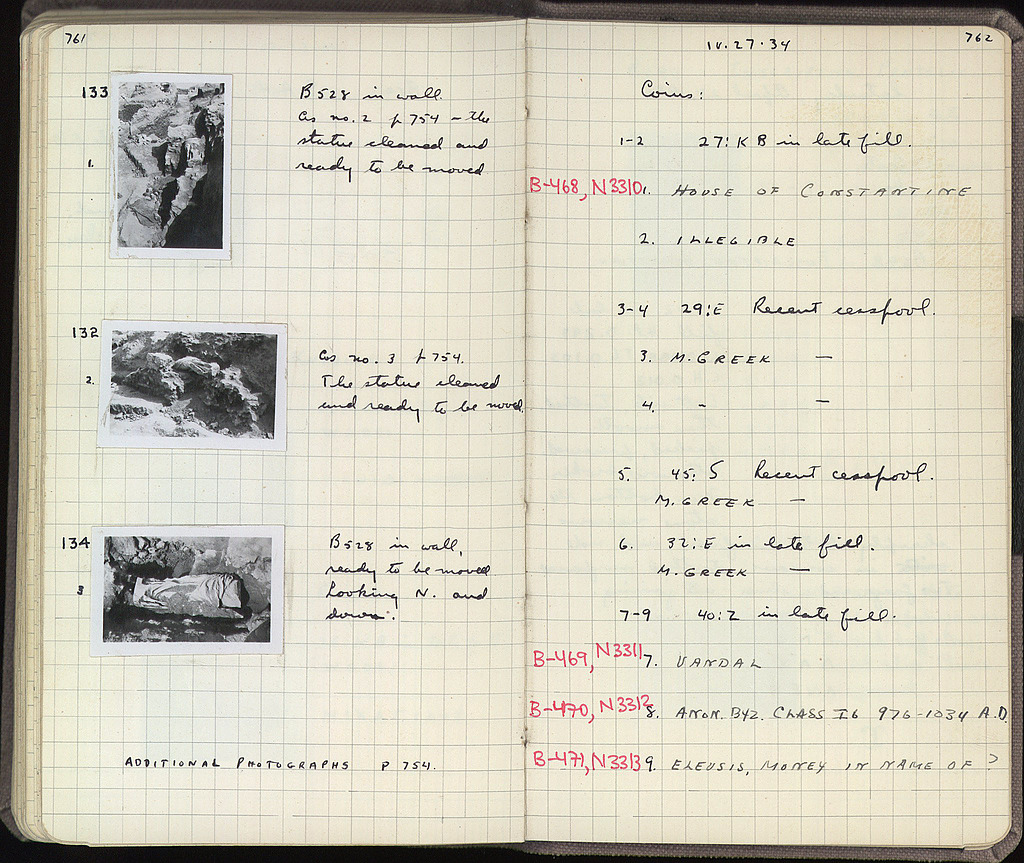 761
133
1.
B528 in wall.
As no. 2 p 754 - the
statue cleaned and
ready to be moved
132
2.
As no. 3 p 754.
The statue cleaned
and ready to be moved.
134
3
B528 in wall,
ready to be moved
Looking N. and
down.
ADDITIONAL PHOTOGRAPHS P 754.
762
IV.27.34
Coins:
1-2 27:KB in late fill.
B-468, N3310 1. HOUSE OF CONSTANTINE
2. ILLEGIBLE
3-4 29:E Recent cesspool.
3. M. GREEK —
4. - —
5. 45:S Recent cesspool.
M. GREEK —
6. 32:E in late fill.
M. GREEK —
7-9 40:Z in late fill.
B-469, N3311 7. VANDAL
B-470, N3312 8. ANON. BYZ. CLASS I6 976-1034 A.D.
B-471, N3313 9. ELEUSIS, MONEY IN NAME OF ?